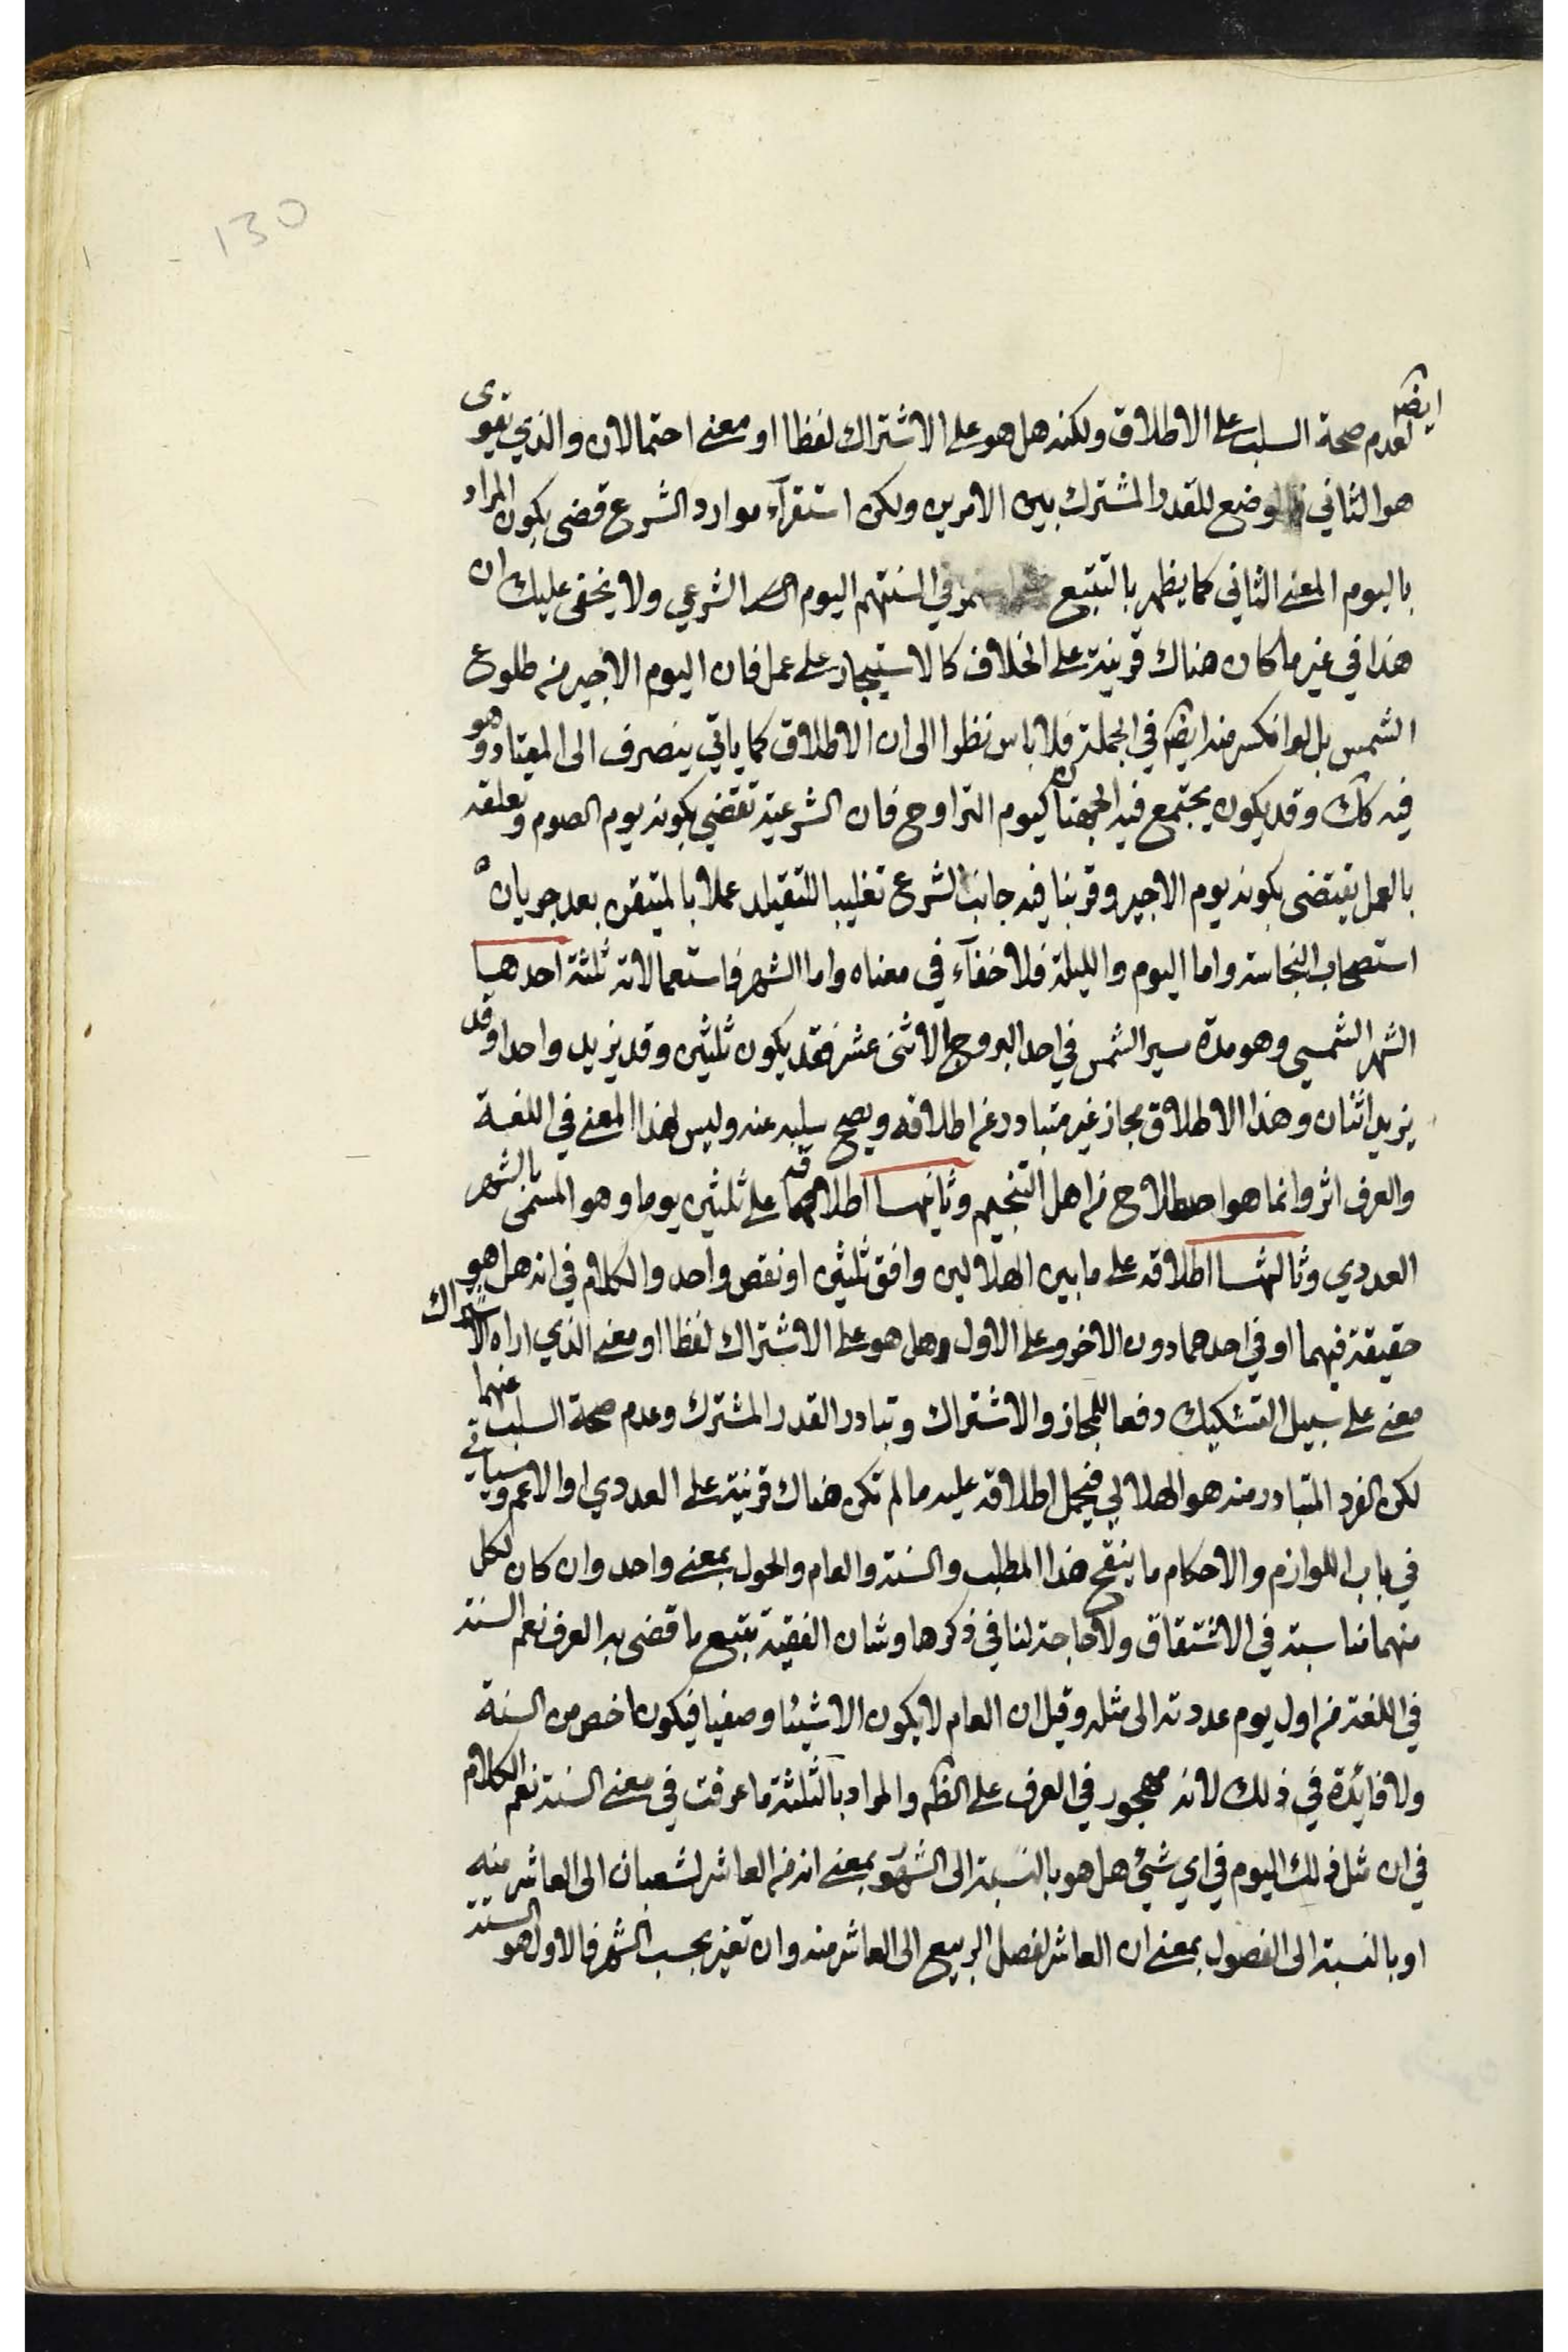 130
ايضا
لعدم صحة السلب على الاطلاق ولكنه هل هو على الاشتراك لفظا او معنى احتمالان والذي يقوى
هو الثاني فالوضع للقدر المشترك بين الامرين ولكن استقرآء موارد الشرع قضى بكون المراد
باليوم المعنى الثاني كما يظهر بالتتبع في السنتهم اليوم الشرعي ولا يخفى عليك ان
هذا في غير ما كان هناك قرينة على الخلاف كالاستيجار على عمل فان اليوم الاجير من طلوع
الشمس بل لو انكسر منه ايضا في الجملة فلا باس نظرا الى ان الاطلاق كما ياتي ينصرف الى المعتاد وهو
فيه كك وقد يكون يجتمع فيه الجهتان كيوم التراوح فان الشرعية تقتضي بكونه يوم الصوم وتعلقه
بالعمل يقتضى بكونه يوم الاجير وقربنا فيه جانب الشرع تغليبا للتقيلد عملا بالمتيقن بعد جريان
استصحاب النجاسة واما اليوم والليلة فلا خفآء في معناه واما الشهر فاستعمالاته ثلثة احدها
الشهر الشمسي وهو مدة سير الشمس في احد البروج الاثنى عشر فقد يكون ثلثين وقد يزيد واحدا وقد
يزيد اثنان وهذا الاطلاق مجاز غير متبادر عن اطلاقه ويصح سلبه عنه وليس لهذا المعنى في اللغة
والعرف اثر وانما هو اصطلاح من اهل التنجيم وثانيها اطلاقه على ثلثين يوما وهو المسمى بالشهر
العددي وثالثها اطلاقه على ما بين الهلالين وافق ثلثين او نقص واحد والكلام في انه هل هو
حقيقة فيهما او في احدهما دون الاخر وعلى الاول وهل هو على الاشتراك لفظا او معنى الذي اراه الاشتراك
معنى على سبيل التشكيك دفعا للمجاز والاشتراك وتبادر القدر المشترك وعدم صحة السلب عنهما
لكن الفرد المتبادر منه هو الهلالي فيحمل اطلاقه عليه ما لم تكن هناك قرينة على العددي او الاعم وسياتي
في باب اللوازم والاحكام ما ينقح هذا المطلب والسنة والعام والحول بمعنى واحد وان كان لكل
منهما مناسبة في الاشتقاق ولا حاجة لنا في ذكرها وشان الفقيه تتبع ما قضى به العرف نعم السنة
في اللغة من اول يوم عددته الى مثله وقيل ان العام لا يكون الا شيئا وصفيا فيكون اخص من السنة
ولا فائدة في ذلك لانه مهجور في العرف على الظم والمراد بالثلثة ما عرفت في معنى السنة نعم الكلام
في ان مثل ذلك اليوم في اي شئ هل هو بالنسبة الى الشهور بمعنى انه من العاشر لشعبان الى العاشر منه
او بالنسبة الى الفصول بمعنى ان العاشر لفصل الربيع الى العاشر منه وان تغير بحسب الشهر فالاول هو السنة